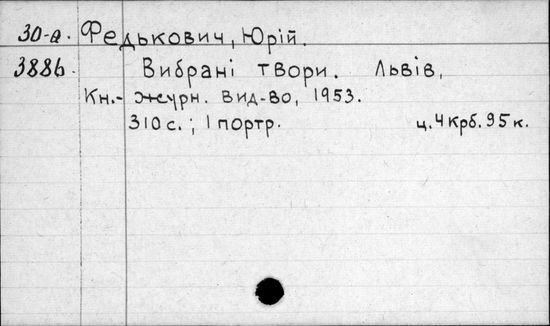 30-а. Федькович, Юрій.
3886. Вибрані твори. Львів,
Кн.-журн. вид-во, 1953.
310 с.; 1 портр. ц. 4 крб. 95 к.